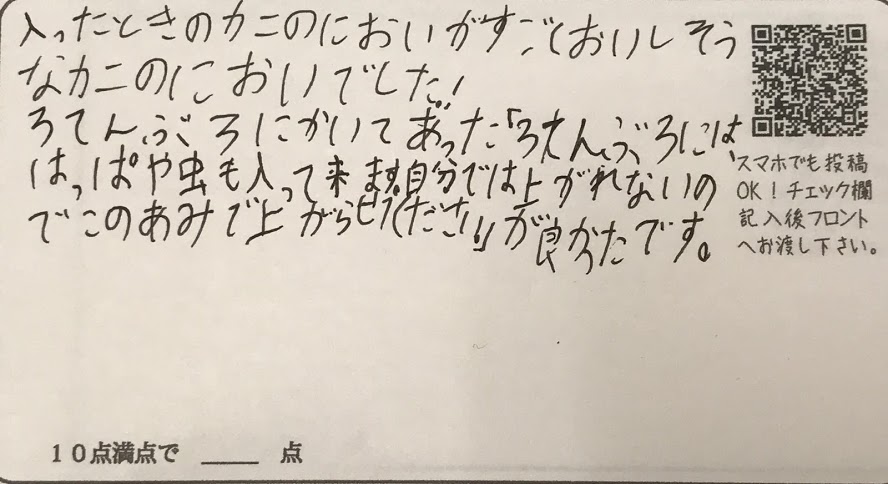 入ったときのカニのにおいがすごくおいしそう
なカニのにおいでした！
ろてんぶろにかいてあった「ろてんぶろには、
はっぱや虫も入って来ます。自分では上がれないの
でこのあみで上がらせてください！」が良かったです。
スマホでも投稿
OK！チェック欄
記入後フロント
へお渡し下さい。
10点満点で ＿＿ 点